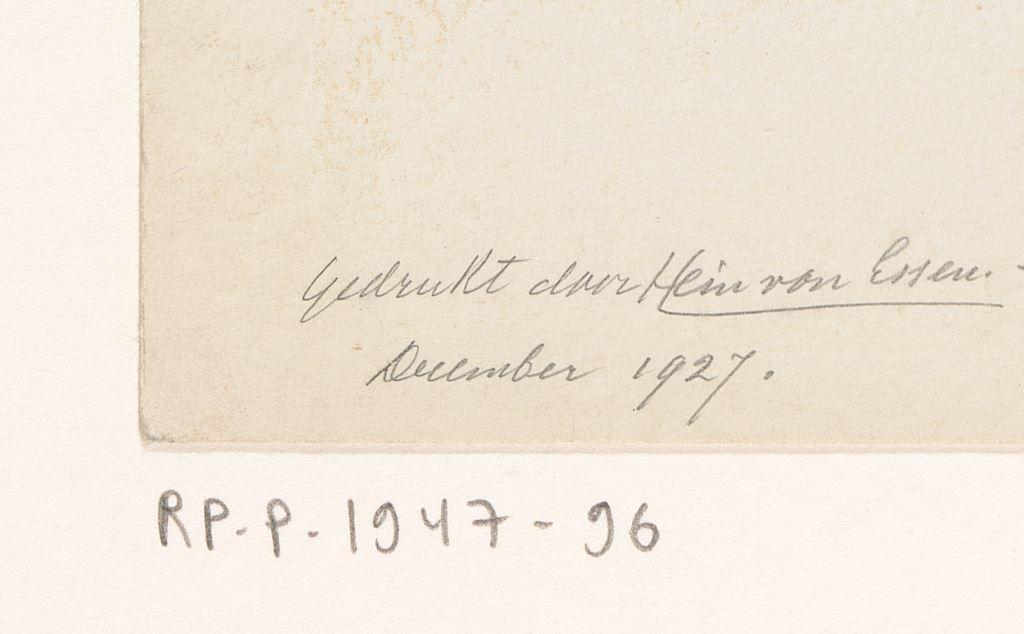 Gedrukt door Hein von Essen. -
December 1927.
RP-P-1947-96